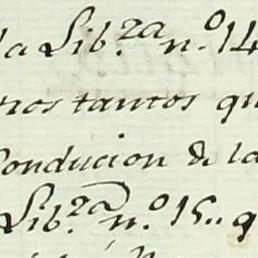 la Lib.ª n.º 14
tros tantos qu
Conducion de la
Lib.ª n.º 15.. q